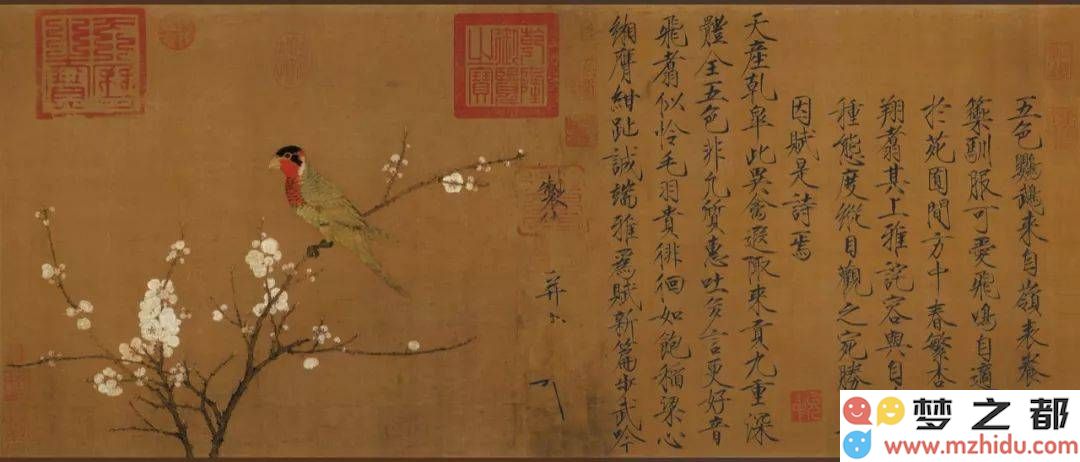 五色鸚鵡來自嶺表養
籞馴服可愛飛鳴自適
於苑囿間方中春繁杏
翔翥其上雅詫容與自
種態度縱目觀之宛勝
因賦是詩焉
天產乾皋此異禽遐陬來貢九重深
體全五色非凡質惠吐多言更好音
飛翥似憐毛羽貴徘徊如飽稻粱心
緗膺紺趾誠端雅為賦新篇步武吟
天曆之寶
梦之都
www.mzhidu.com